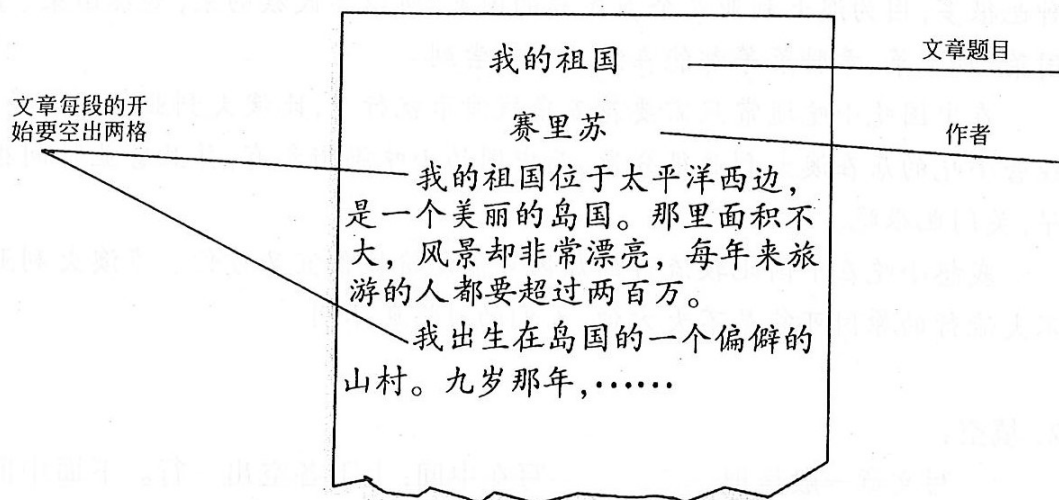 我的祖国
文章题目
文章每段的开
始要空出两格
赛里苏
作者
我的祖国位于太平洋西边，
是一个美丽的岛国。那里面积不
大，风景却非常漂亮，每年来旅
游的人都要超过两百万。
我出生在岛国的一个偏僻的
山村。九岁那年，……